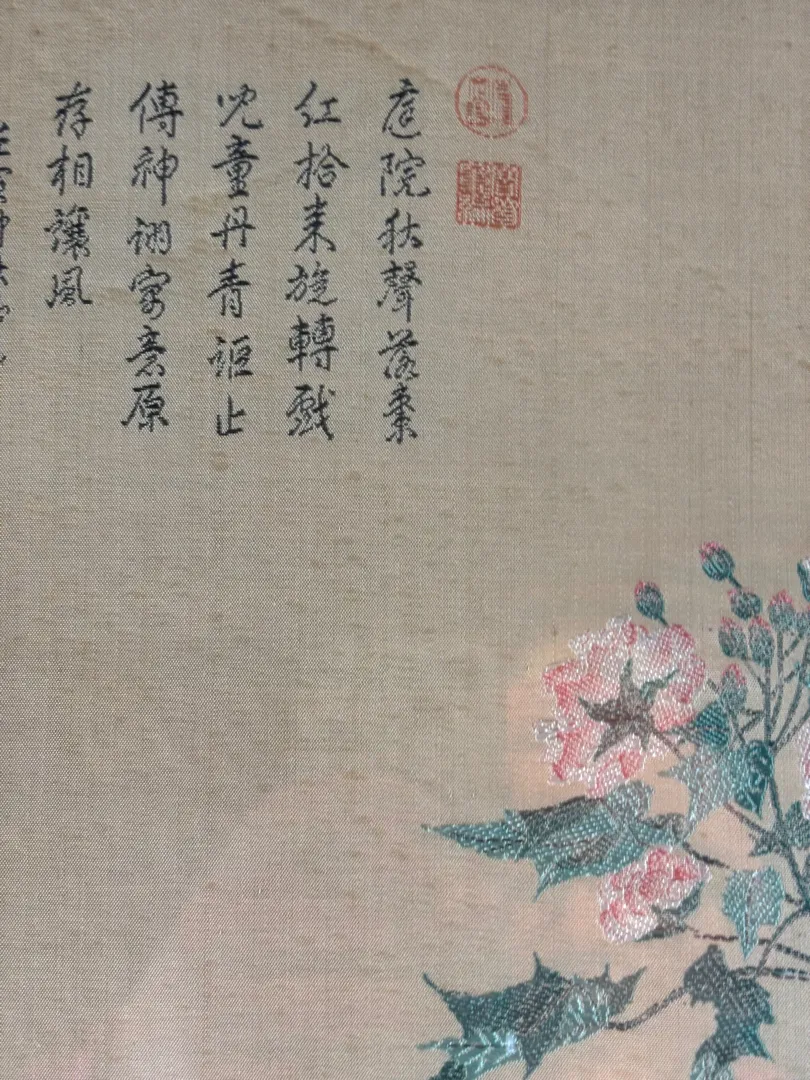 庭院秋聲落棗
紅拾來旋轉戲
兒童丹青詎止
傳神詡寓意原
存相讓風